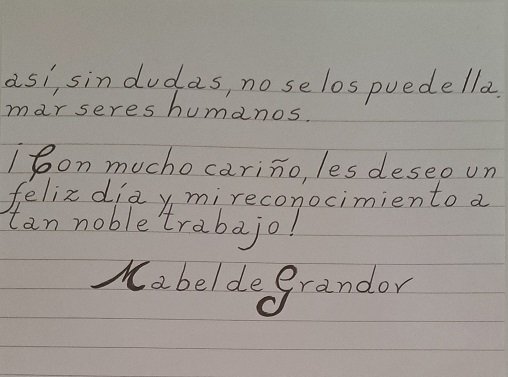 así, sin dudas, no se los puede lla.
mar seres humanos.
¡Con mucho cariño, les deseo un
feliz día y mi reconocimiento a
tan noble trabajo!
Mabel de Grandor